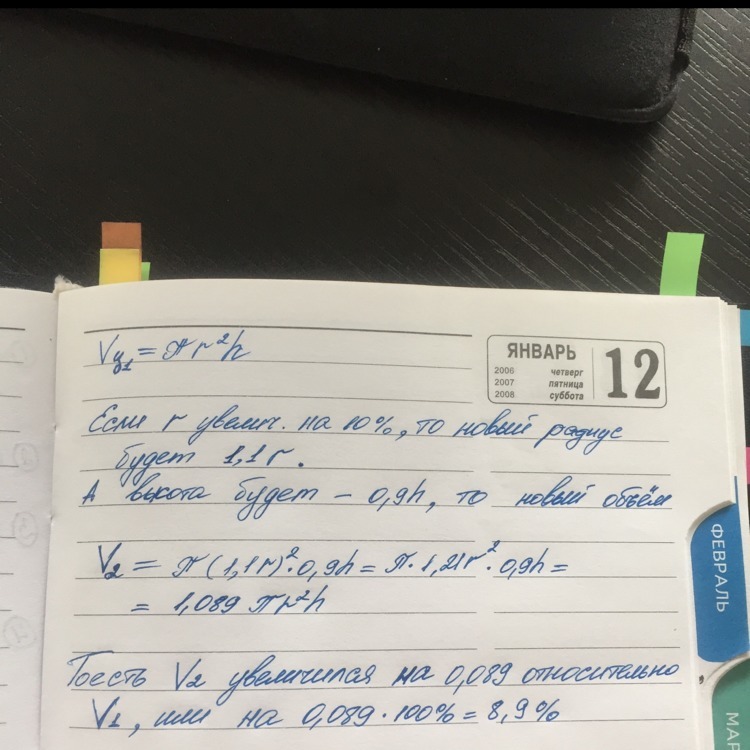 Vц₁ = πr²h
ЯНВАРЬ 12
2006 четверг
2007 пятница
2008 суббота
Если r увелич. на 10%, то новый радиус
будет 1,1 r.
А высота будет – 0,9h, то новый объём
V₂ = π(1,1r)²·0,9h = π·1,21r²·0,9h =
= 1,089 πr²h
Тоесть V₂ увеличился на 0,089 относительно
V₁, или на 0,089·100% = 8,9%
ФЕВРАЛЬ
МАР